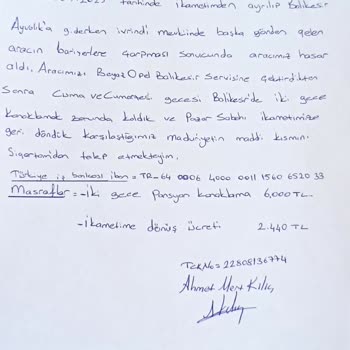 2025 tarihinde ikametimden ayrılıp Balıkesir
Ayvalık'a giderken ivrindi mevkiinde başka yönden gelen
aracın bariyerlere çarpması sonucunda aracımız hasar
aldı. Aracımızı Beyaz Opel Balıkesir Servisine Çektirdikten
Sonra Cuma ve Cumartesi gecesi Balıkesir'de iki gece
Konaklamak zorunda kaldık ve Pazar Sabahı ikametimize
geri döndük karşılaştığımız maduriyetin maddi kısmını
Sigortamdan talep etmekteyim.
Türkiye iş bankası iban = TR-64 0006 4000 0011 1560 6520 33
Masraflar = -iki gece Pansyon konaklama 6,000 TL
-ikametime dönüş ücreti 2.440 TL
TCK No = 22808136774
Ahmet Mert Kılıç